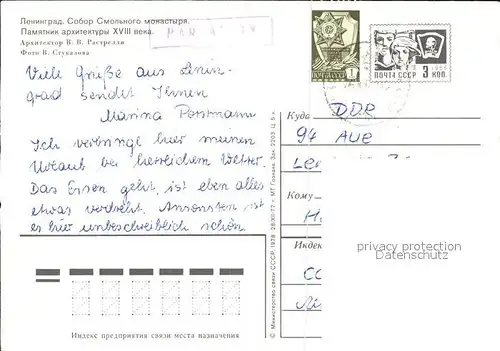 Ленинград. Собор Смольного монастыря.
Памятник архитектуры XVIII века.
Архитектор В. В. Растрелли
Фото В. Стукалова
PAR AVION
Viele Grüße aus Lenin-
grad sendet Ihnen
Marina Portmann
Ich verbringe hier meinen
Urlaub bei herrlichem Wetter.
Das Essen geht, ist eben alles
etwas verdreht. Ansonsten ist
es hier unbeschreiblich schön.
ПОЧТА СССР 3 КОП.
1
Куда
DDR
94 AUE
Кому
Индекс
privacy protection
Datenschutz
© Министерство связи СССР, 1978
Индекс предприятия связи места назначения